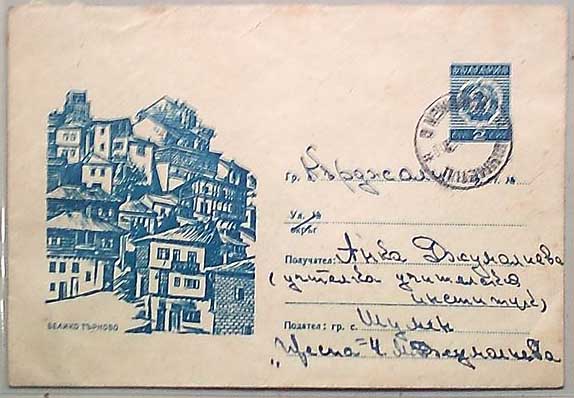 БЪЛГАРИЯ
2
гр. Кърджали п. ст. №
Ул. №
окръг
Получател: Анка Джумалиева
(учителка учителска
институт)
Подател: гр. с. Шумен
ВЕЛИКО ТЪРНОВО